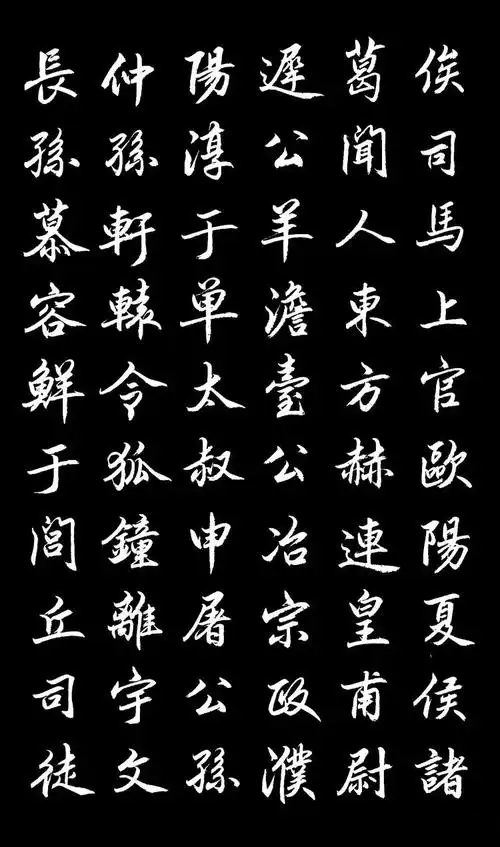 俟司馬上官歐陽夏侯諸
葛聞人東方赫連皇甫尉
遲公羊澹臺公冶宗政濮
陽淳于单太叔申屠公孫
仲孫軒轅令狐鐘離宇文
長孫慕容鮮于閭丘司徒